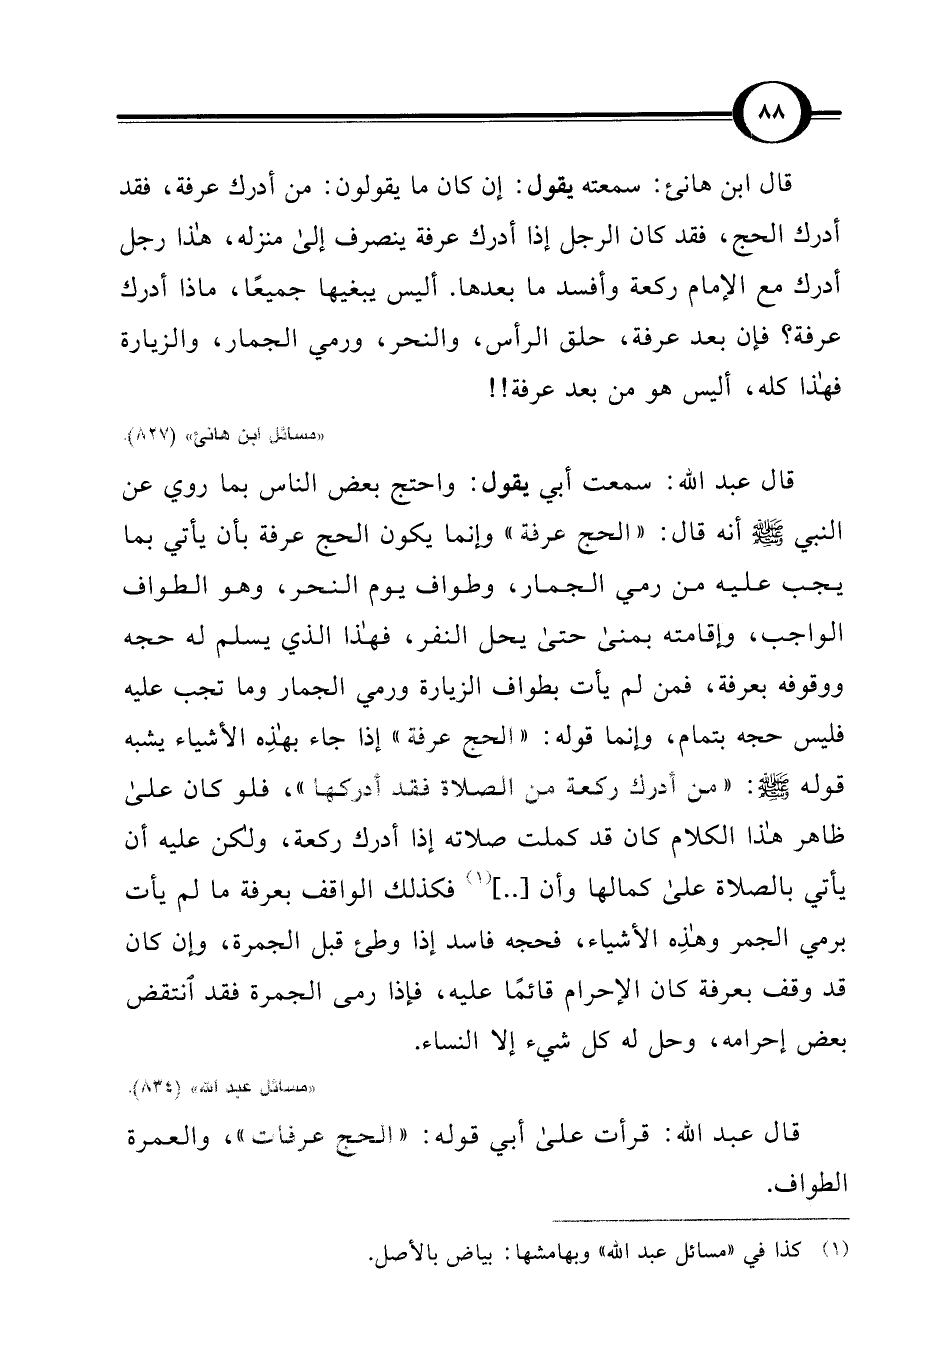 ٨٨
قال ابن هانئ: سمعته يقول: إن كان ما يقولون: من أدرك عرفة، فقد
أدرك الحج، فقد كان الرجل إذا أدرك عرفة ينصرف إلىٰ منزله، هٰذا رجل
أدرك مع الإمام ركعة وأفسد ما بعدها. أليس يبغيها جميعًا، ماذا أدرك
عرفة؟ فإن بعد عرفة، حلق الرأس، والنحر، ورمي الجمار، والزيارة
فهٰذا كله، أليس هو من بعد عرفة!!
«مسائل ابن هانئ» (٨٢٧).
قال عبد الله: سمعت أبي يقول: واحتج بعض الناس بما روي عن
النبي ﷺ أنه قال: «الحج عرفة» وإنما يكون الحج عرفة بأن يأتي بما
يجب عليه من رمي الجمار، وطواف يوم النحر، وهو الطواف
الواجب، وإقامته بمنىٰ حتىٰ يحل النفر، فهٰذا الذي يسلم له حجه
ووقوفه بعرفة، فمن لم يأت بطواف الزيارة ورمي الجمار وما تجب عليه
فليس حجه بتمام، وإنما قوله: «الحج عرفة» إذا جاء بهٰذِه الأشياء يشبه
قوله ﷺ: «من أدرك ركعة من الصلاة فقد أدركها»، فلو كان علىٰ
ظاهر هٰذا الكلام كان قد كملت صلاته إذا أدرك ركعة، ولٰكن عليه أن
يأتي بالصلاة علىٰ كمالها وأن [..](١) فكذلك الواقف بعرفة ما لم يأت
برمي الجمر وهٰذِه الأشياء، فحجه فاسد إذا وطئ قبل الجمرة، وإن كان
قد وقف بعرفة كان الإحرام قائمًا عليه، فإذا رمى الجمرة فقد ٱنتقض
بعض إحرامه، وحل له كل شيء إلا النساء.
«مسائل عبد الله» (٨٣٤).
قال عبد الله: قرأت علىٰ أبي قوله: «الحج عرفات»، والعمرة
الطواف.
(١) كذا في «مسائل عبد الله» وبهامشها: بياض بالأصل.